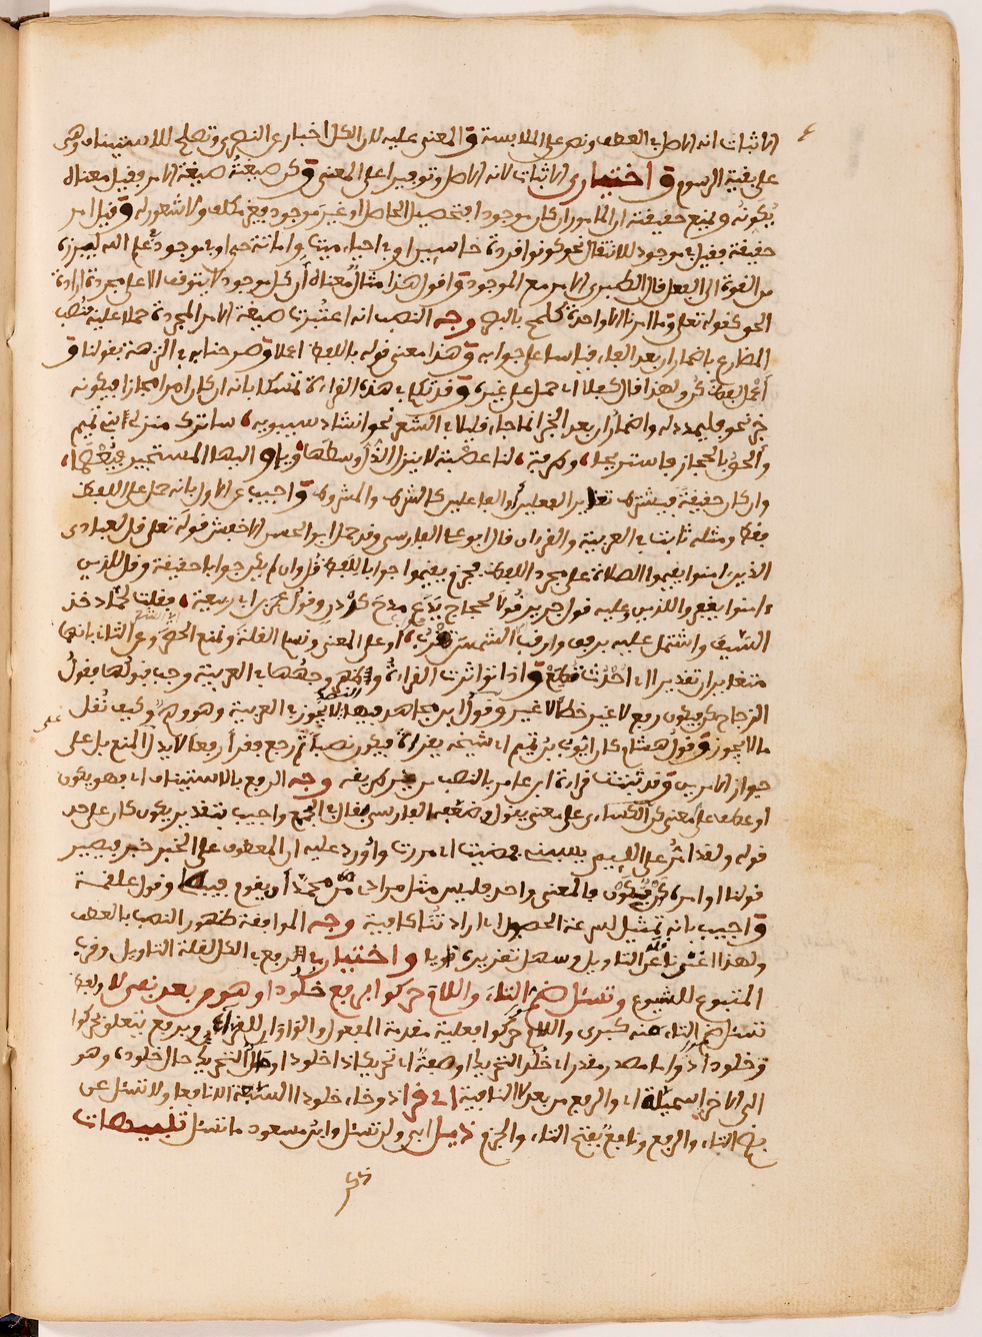 الاثبات انه الاصل في العطف ونص على الملابسة والمعنى عليه لان الكل اخبار عن النصرى وتصلح للاستيناف وهى
على بقية الرسوم واختيارى الاثبات لانه الاصل وتوفيرا على المعنى وكن صيغته صيغة الامر فقيل معناه
يكونه ويمنع حقيقته ان المامور ان كان موجودا فتحصيل الحاصل او غير موجود فغير مكلف ولا شعور له وقيل امر
حقيقة فقيل في موجود للانتقال نحو كونوا قردة خاسين او في احياء ميت واماتة حى او في موجود في علم الله ليبرزه
من القوة الى الفعل قال الطبرى الامر مع الموجود واقول هذا مثال معناه ان كل موجود لا يتوقف الا على مجرد ارادة
الحق كقوله تعلى وما امرنا الا واحدة كلمح بالبصر وجه النصب انه اعتبرت صيغة الامر المجردة حملا عليه فنصب
المضارع باضمار ان بعد الفاء قياسا على جوابه وهذا معنى قوله باللفظ اعملا وصرحنا به في النزهة بقولنا و
اعمل لفظ كن ولهذا قال كفيلا اى حمل على غيره وقد تكلم في هذه القراءة تمسكا بانه ان كان امرا مجازا فيكونه
خبر نحو فليمدد له واضمار ان بعد الخبر انما جاء قليلا في الشعر نحو انشاد سيبويه ساترك منزلى لبنى تميم
والحق بالحجاز فاستريحا وطرفة لنا هضبة لا ينزل الذل وسطها وياوى اليها المستجير فيعصما
وان كان حقيقة فيشترط تغاير الفعلين او الفاعلين كالشرط والمشروط واجيب عن الاول بانه حمل على اللفظ
فقط ومثله ثابت في العربية والقران قال ابو على الفارسى وقد حمل ابو الحسن الاخفش قوله تعلى قل لعبادى
الذين امنوا يقيموا الصلاة على مجرد اللفظ فجزم يقيموا جوابا للفظ قل وان لم يكن جوابا حقيقة وقل للذين
ءامنوا يغفروا للذين وعليه قول جرير قولا لحجاج يدع مدح
السيف واشتمل عليه برفق وارقب الشمس تغرب او على المعنى ونسلم القلة ونمنع الحصر وعن الثانى بانهما
متغايران تقديرا اى احدث فيقع واذا تواترت القراءة وظهر وجهها في العربية وجب قبولها فقول
الزجاج كن فيكون رفع لا غير خطا لا غير وقول ابن مجاهد فيها لا يجوز في العربية وهو وهم وكيف نقل
ما لا يجوز وقول هشام كان ايوب بن تميم اى شيخه يقراه فيكون نصبا ثم رجع فقرا رفعا لا يدل المنع بل على
جواز الامرين وقد ثبتت قراءة ابن عامر بالنصب من غير طريقه وجه الرفع بالاستيناف اى فهو يكون
او عطف على معنى كن الكساءى على معنى يقول وضعفه الفارسى فقال في الجميع واجيب بتقدير يكون كان على حد
قوله ولقد امر على اللئيم يسبنى فمضيت اى مررت واورد عليه ان المعطوف على الخبر خبر فيصير
قولنا اوامره كن فيكون فالمعنى واحد فليس مثل مرادى من محمد ان يقوم فيعطى وقول علقمة
واجيب بانه تمثيل لسرعة الحصول اى اراد تشاكلية وجه الموافقة ظهور النصب بالعطف
ولهذا اغنى ناقله عن التاويل وسهل تقديره فويا واختيارى الرفع في الكل لقلة التاويل وقرب
المتبوع للشيوع وتسئل ضم التاء واللام حركوا برفع خلودا وهو من بعد نفى لا ولفظ
تسئل ضم التاء منه كبرى واللام حركوا فعلية مقدمة المفعول والواو ان للقراء وبرفع يتعلق بحركوا
وخلودا اما مصدر مقدر اى خلد التحريك او صفة اى تحريكا ذا خلود او حال التحريك حال خلوده وهو
الى الاخر اسمية اى والرفع من بعد لا النافية اى قرا ذو خاء خلودا السبعة الا نافعا ولا تسئل عن
بضم التاء والرفع ونافع بفتح التاء والجزم ذيل ابى ولن تسئل وابن مسعود ما تسئل تنبيهات